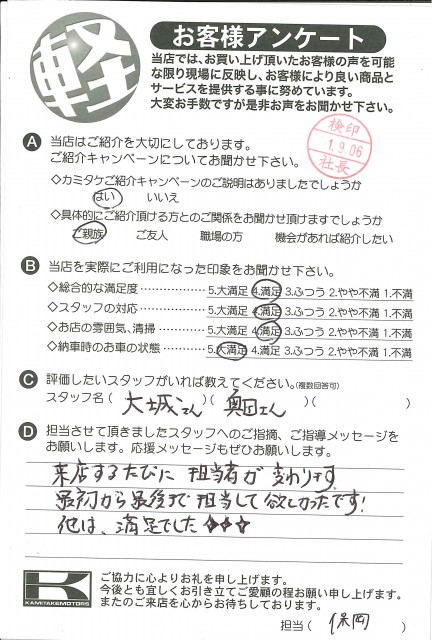 軽
お客様アンケート
当店では、お買い上げ頂いたお客様の声を可能
な限り現場に反映し、お客様により良い商品と
サービスを提供する事に努めています。
大変お手数ですが是非お声をお聞かせ下さい。
検印
1.9.06
社長
A 当店はご紹介を大切にしております。
ご紹介キャンペーンについてお聞かせ下さい。
◇カミタケご紹介キャンペーンのご説明はありましたでしょうか
はい いいえ
◇具体的にご紹介頂ける方とのご関係をお聞かせ頂けますでしょうか
ご親族 ご友人 職場の方 機会があれば紹介したい
B 当店を実際にご利用になった印象をお聞かせ下さい。
◇総合的な満足度 5.大満足 4.満足 3.ふつう 2.やや不満 1.不満
◇スタッフの対応 5.大満足 4.満足 3.ふつう 2.やや不満 1.不満
◇お店の雰囲気、清掃 5.大満足 4.満足 3.ふつう 2.やや不満 1.不満
◇納車時のお車の状態 5.大満足 4.満足 3.ふつう 2.やや不満 1.不満
C 評価したいスタッフがいれば教えてください。(複数回答可)
スタッフ名( 大城さん )( 奥田さん )( )
D 担当させて頂きましたスタッフへのご指摘、ご指導メッセージを
お願いします。応援メッセージもぜひお願します。
来店するたびに担当者が変わります
最初から最後まで担当して欲しかったです!
他は、満足でした☆☆☆
K
KAMITAKEMOTORS
ご協力に心よりお礼を申し上げます。
今後とも宜しくお引き立てご愛顧の程お願い申し上げます。
またのご来店を心からお待ちしております。
担当( 保岡 )